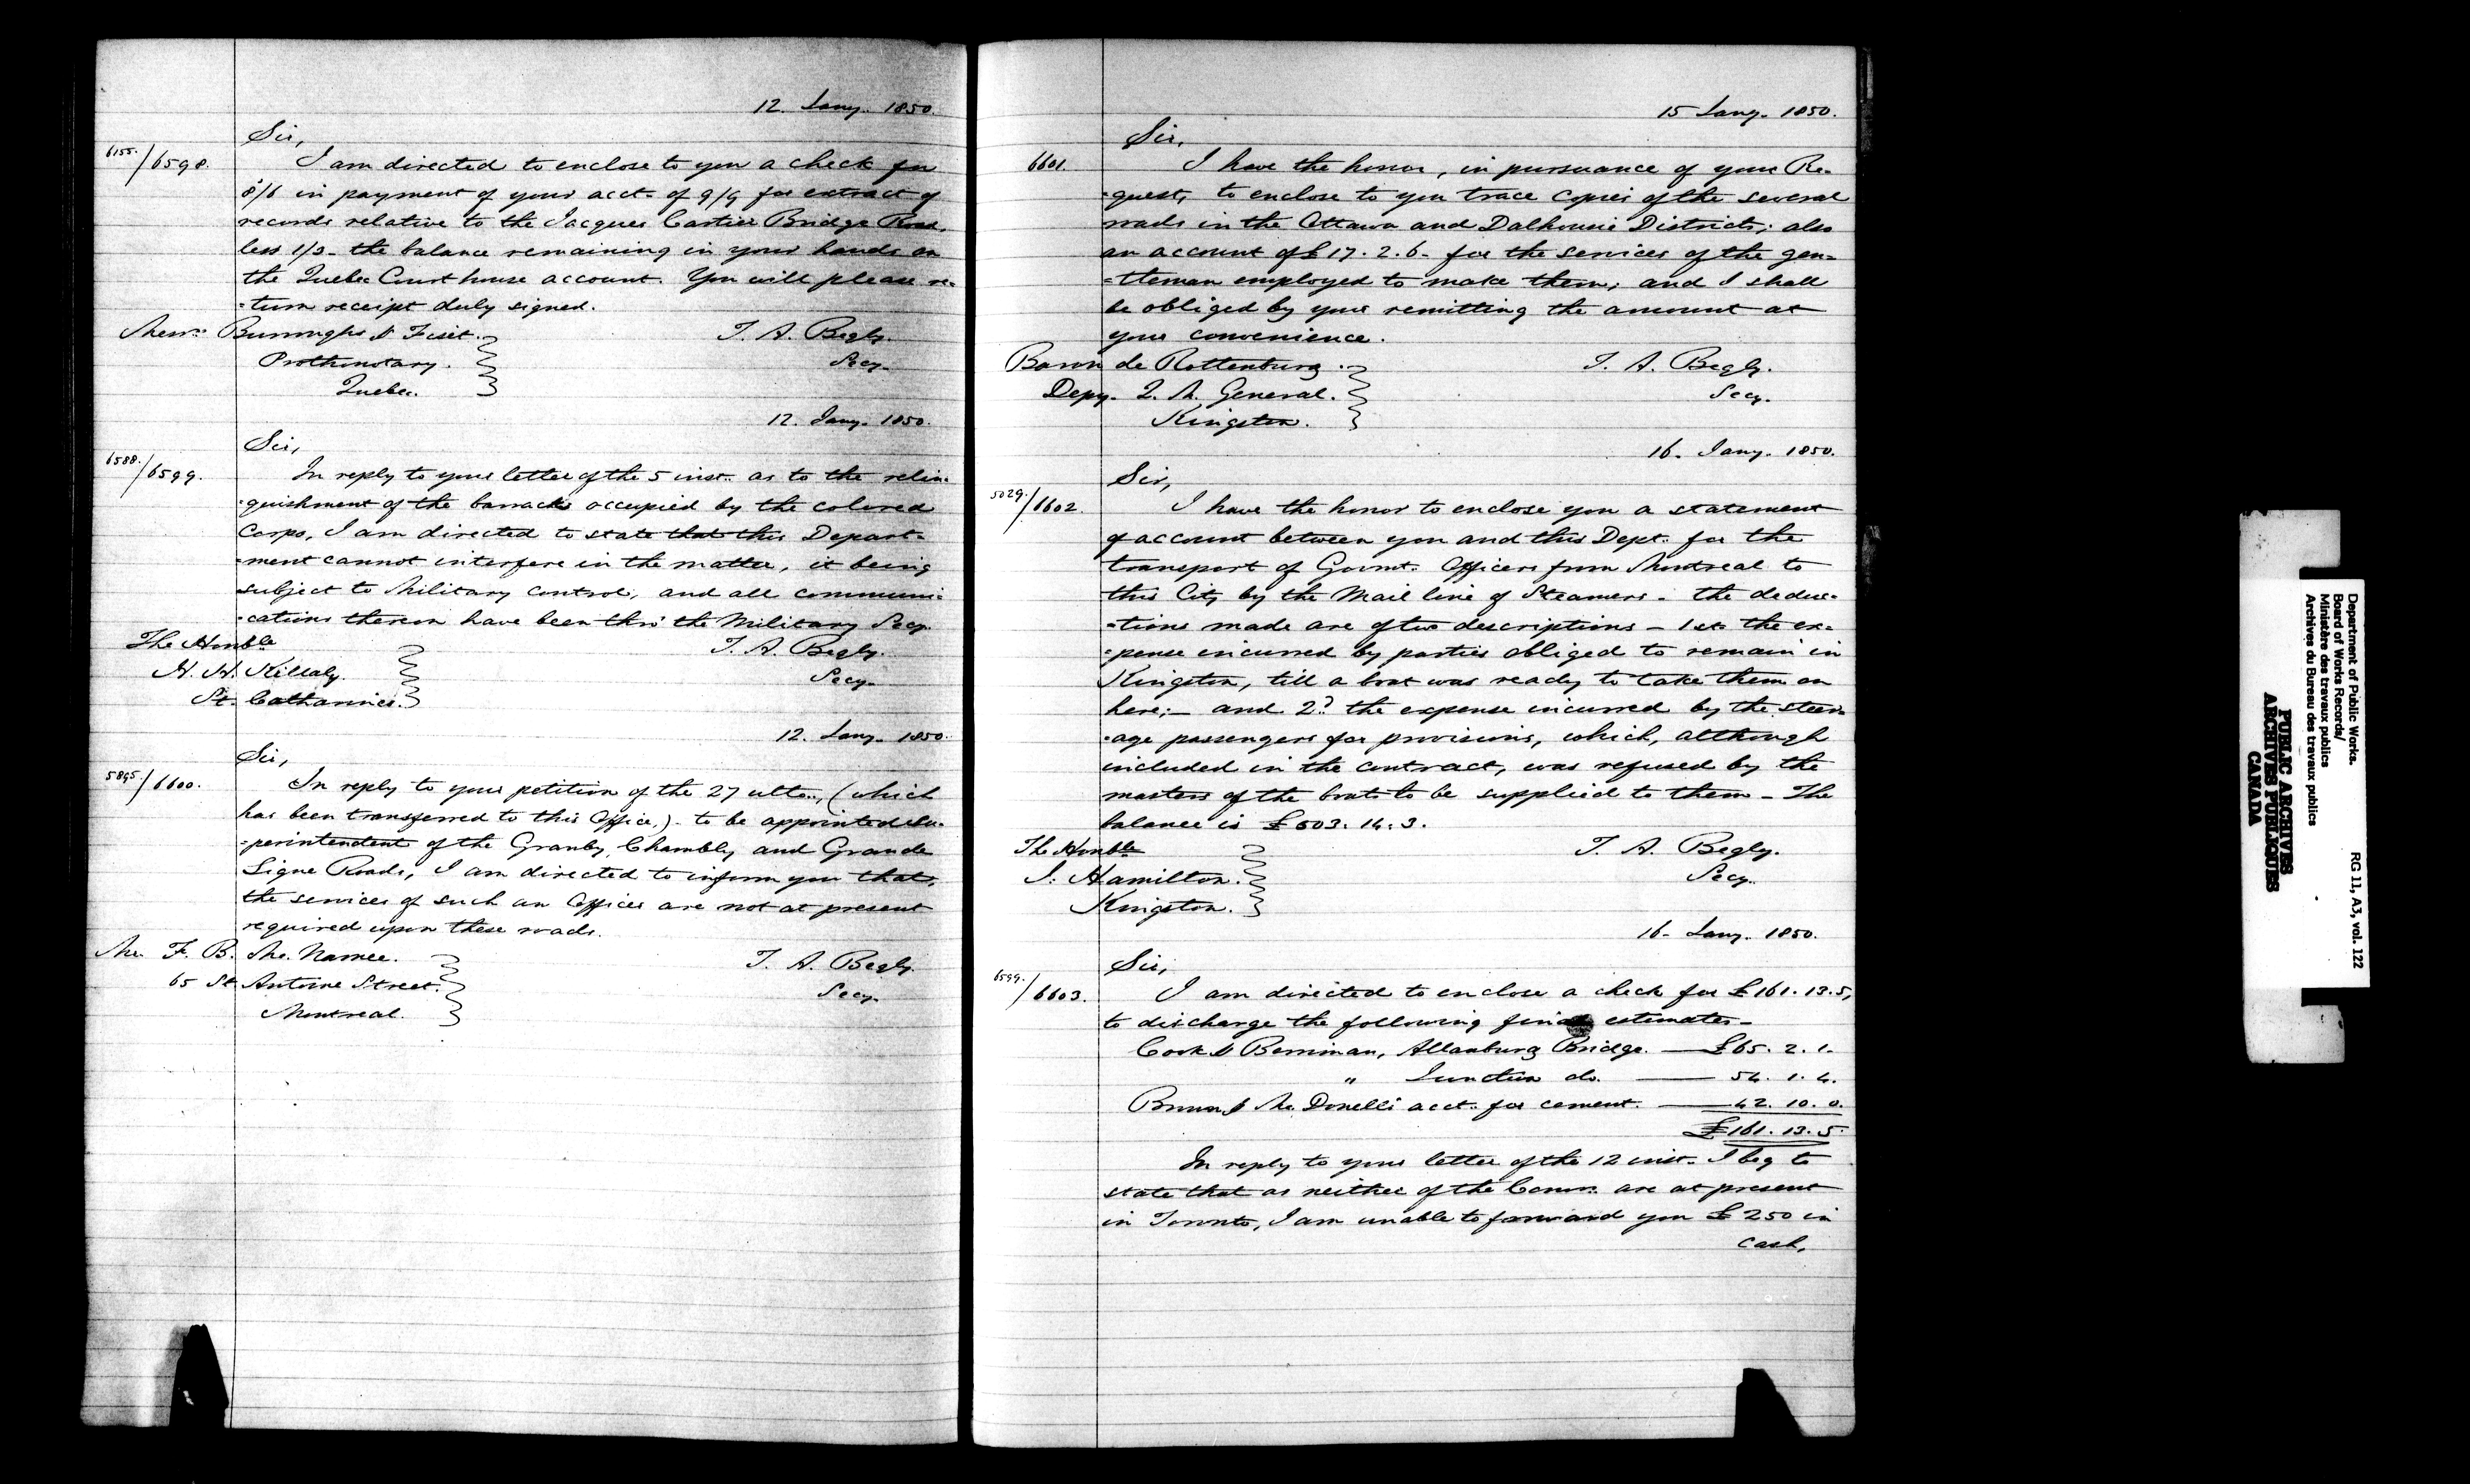 12. Jany. 1850.
Sir,
6155./6598. I am directed to enclose to you a check for
8/6 in payment of your acct. of 9/9 for extract of
records relative to the Jacques Cartier Bridge Road,
less 1/3 - the balance remaining in your hands on
the Quebec Court house account. You will please re-
-turn receipt duly signed.
Messrs. Burroughs & Fiset. T. A. Begly.
Prothonotary. Secy.
Quebec.
12. Jany. 1850.
Sir,
6588./6599. In reply to your letter of the 5 inst. as to the relin-
-quishment of the barracks occupied by the colored
Corps, I am directed to state that this Depart-
-ment cannot interfere in the matter, it being
subject to Military control, and all communi-
-cations thereon have been thro' the Military Secy.
The Honble. T. A. Begly.
H. H. Killaly. Secy.
St. Catharines.
12. Jany. 1850.
Sir,
5895./6600. In reply to your petition of the 27 ulto., (which
has been transferred to this Office,) to be appointed Su-
-perintendent of the Granby, Chambly and Grande
Ligne Roads, I am directed to inform you that,
the services of such an Officer are not at present
required upon these roads.
Mr. F. B. Mc. Namee. T. A. Begly.
65 St Antoine Street. Secy.
Montreal.
15 Jany. 1850.
Sir,
6601. I have the honor, in pursuance of your Re-
-quest, to enclose to you trace copies of the several
roads in the Ottawa and Dalhousie Districts; also
an account of £17. 2. 6. for the services of the gen-
-tleman employed to make them; and I shall
be obliged by your remitting the amount at
your convenience.
Baron de Rottenburg. T. A. Begly.
Depy. Q. M. General. Secy.
Kingston.
16. Jany. 1850.
Sir,
5029./6602. I have the honor to enclose you a statement
of account between you and this Dept. for the
transport of Govmt. Officers from Montreal to
this City by the Mail line of Steamers - the deduc-
-tions made are of two descriptions - 1st. the ex-
-pense incurred by parties obliged to remain in
Kingston, till a boat was ready to take them on
here; - and 2d. the expense incurred by the steer-
-age passengers for provisions, which, although
included in the contract, was refused by the
masters of the boats to be supplied to them - The
balance is £503. 14. 3.
The Honble. T. A. Begly.
J. Hamilton. Secy.
Kingston.
16. Jany. 1850.
Sir,
6599./6603. I am directed to enclose a check for £161. 13. 5,
to discharge the following final estimates -
Cook & Berriman, Allanburg Bridge. — £65. 2. 1.
" Junction do. — 54. 1. 4.
Brown & Mc. Donell's acct. for cement. — 42. 10. 0.
£161. 13. 5.
In reply to your letter of the 12 inst. I beg to
state that as neither of the Comrs. are at present
in Toronto, I am unable to forward you £250 in
cash,
Department of Public Works.
Board of Works Records/
Ministère des travaux publics
Archives du Bureau des travaux publics
RG 11, A3, vol. 122
PUBLIC ARCHIVES
ARCHIVES PUBLIQUES
CANADA